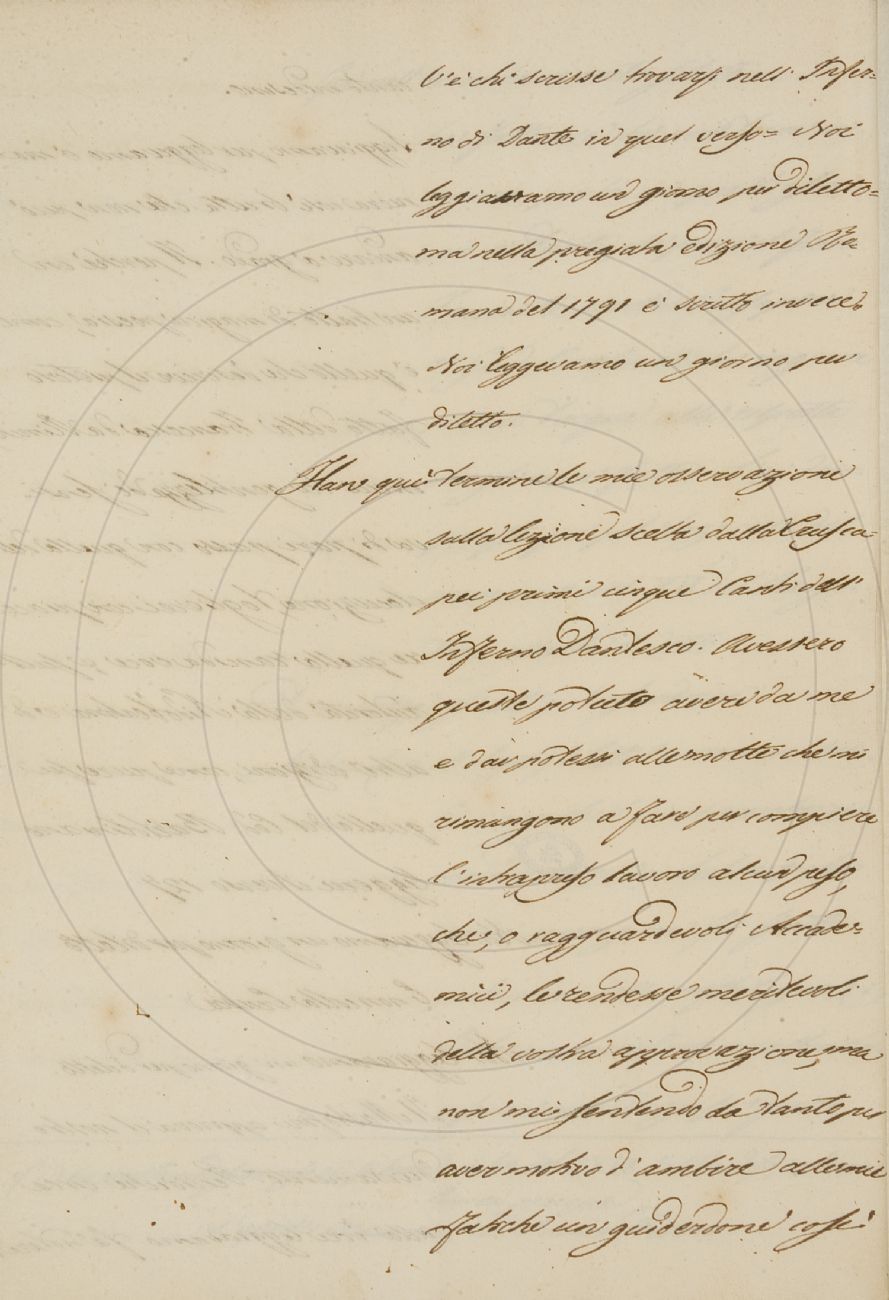 V'è chi scrisse trovarsi nell' Infer-
no di Dante in quel verso= Noi
leggiavamo un giorno per diletto=
ma nella pregiata edizione Ro-
mana del 1791 è scritto invece=
Noi leggevamo un giorno per
diletto.
Han qui termine le mie osservazioni
sulla lezione scelta dalla Crusca
pei primi cinque Canti dell'
Inferno Dantesco. Avessero
queste potuto avere da me
e dar potessi alle molte che mi
rimangono a fare per compiere
l'intrapreso lavoro alcun peso,
che, o ragguardevoli Accade-
mici, le rendesse meritevoli
della vostra approvazione; ma
non mi sentendo da tanto per
aver motivo d'ambire alle mie
fatiche un guiderdone così